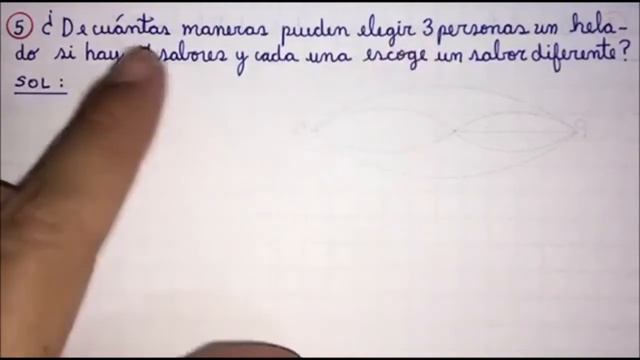 5 ¿De cuántas maneras pueden elegir 3 personas un hela-
do si hay sabores y cada una escoge un sabor diferente?
SOL: